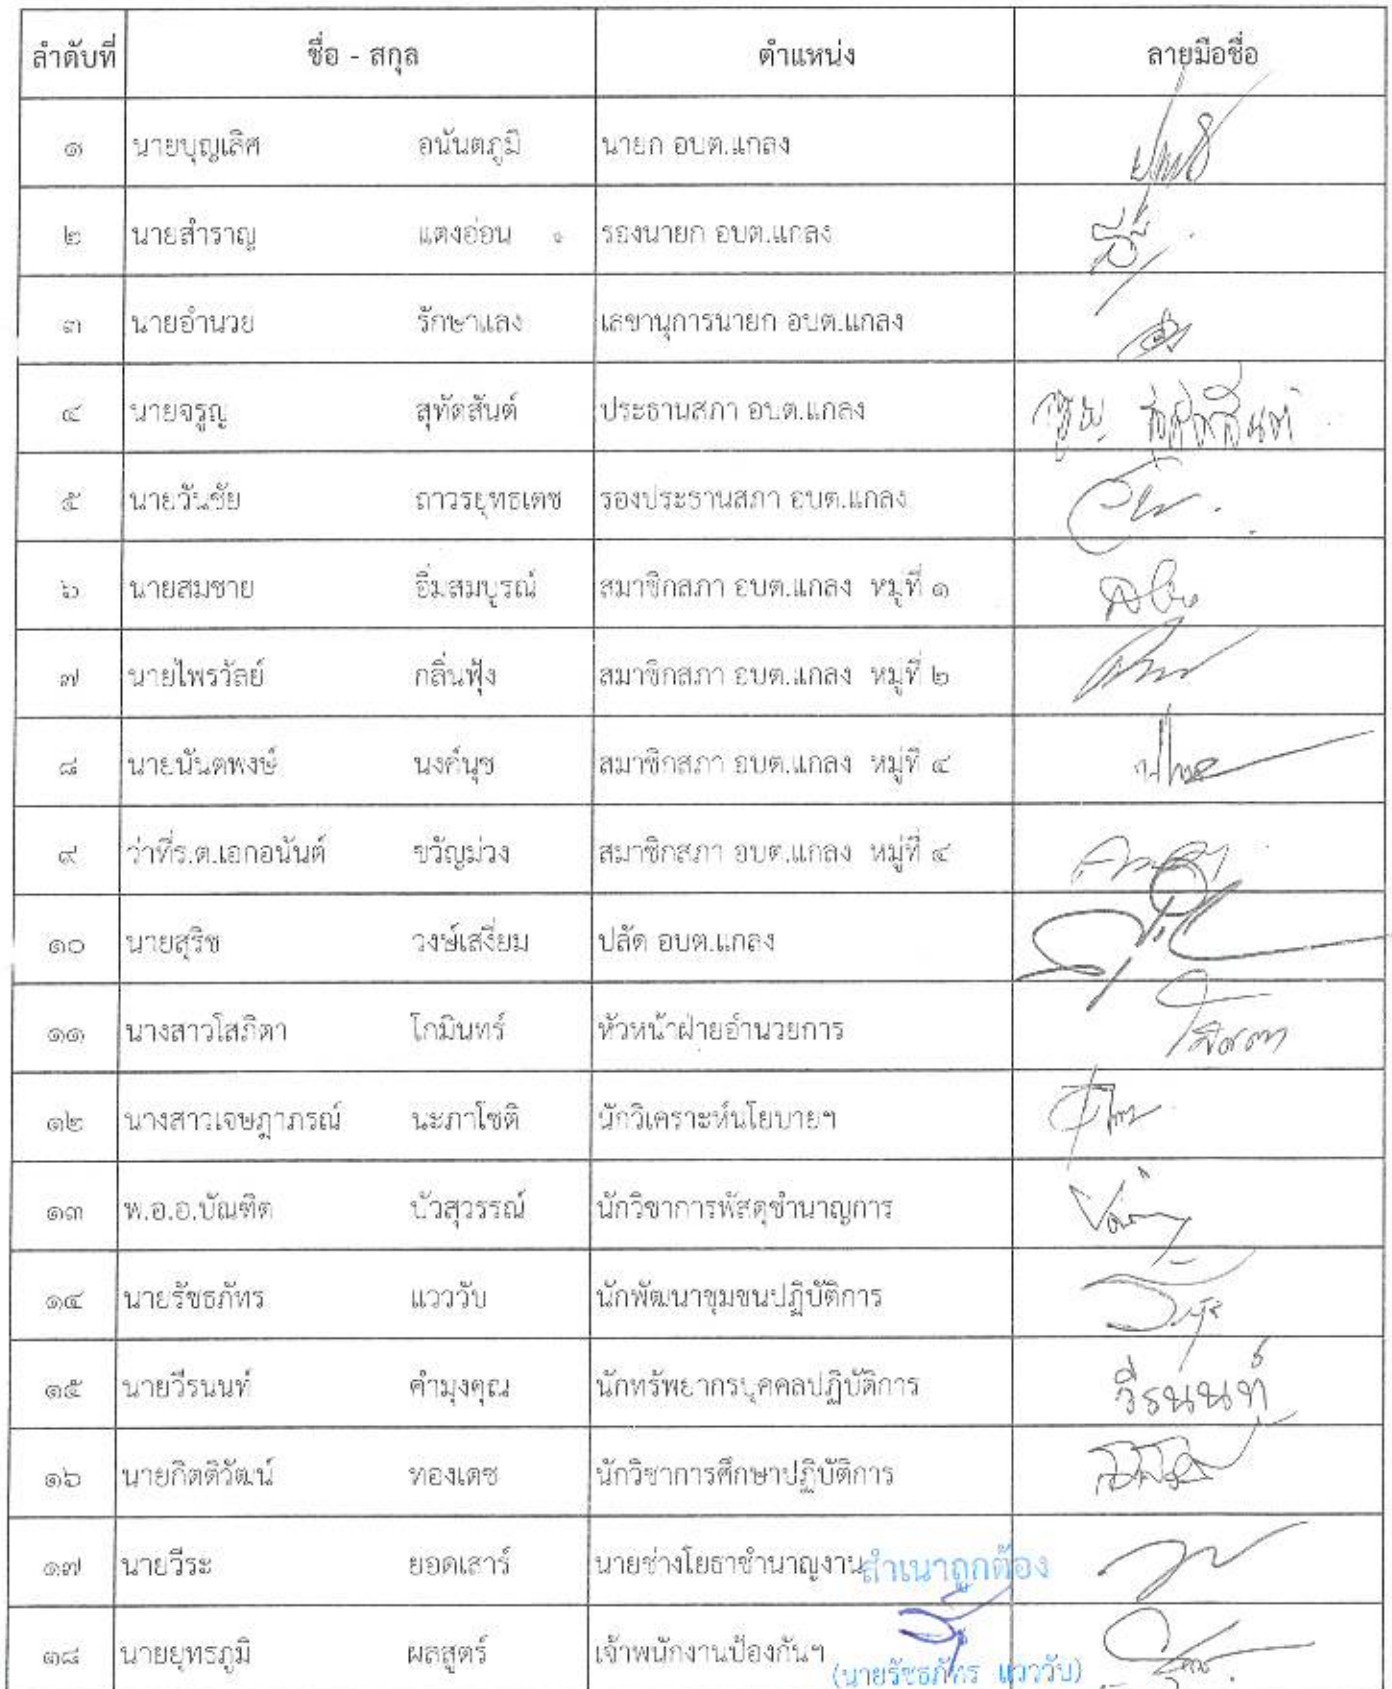 ลำดับที่ ชื่อ - สกุล ตำแหน่ง ลายมือชื่อ
๑ นายบุญเลิศ อนันตภูมิ นายก อบต.แกลง
๒ นายสำราญ แตงอ่อน รองนายก อบต.แกลง
๓ นายอำนวย รักษาแลง เลขานุการนายก อบต.แกลง
๔ นายจรูญ สุทัดสันต์ ประธานสภา อบต.แกลง
๕ นายวันชัย ถาวรยุทธเดช รองประธานสภา อบต.แกลง
๖ นายสมชาย อิ่มสมบูรณ์ สมาชิกสภา อบต.แกลง หมู่ที่ ๑
๗ นายไพรวัลย์ กลิ่นฟุ้ง สมาชิกสภา อบต.แกลง หมู่ที่ ๒
๘ นายนันตพงษ์ นงค์นุช สมาชิกสภา อบต.แกลง หมู่ที่ ๔
๙ ว่าที่ร.ต.เอกอนันต์ ขวัญม่วง สมาชิกสภา อบต.แกลง หมู่ที่ ๔
๑๐ นายสุริช วงษ์เสงี่ยม ปลัด อบต.แกลง
๑๑ นางสาวโสภิตา โกมินทร์ หัวหน้าฝ่ายอำนวยการ
๑๒ นางสาวเจษฎาภรณ์ นะภาโชติ นักวิเคราะห์นโยบายฯ
๑๓ พ.อ.อ.บัณฑิต บัวสุวรรณ์ นักวิชาการพัสดุชำนาญการ
๑๔ นายรัชธภัทร แวววับ นักพัฒนาชุมชนปฏิบัติการ
๑๕ นายวีรนนท์ คำมุงคุณ นักทรัพยากรบุคคลปฏิบัติการ วีรนนท์
๑๖ นายกิตติวัฒน์ ทองเดช นักวิชาการศึกษาปฏิบัติการ
๑๗ นายวีระ ยอดเสาร์ นายช่างโยธาชำนาญงาน สำเนาถูกต้อง
๑๘ นายยุทธภูมิ ผลสูตร์ เจ้าพนักงานป้องกันฯ
(นายรัชธภัทร แวววับ)